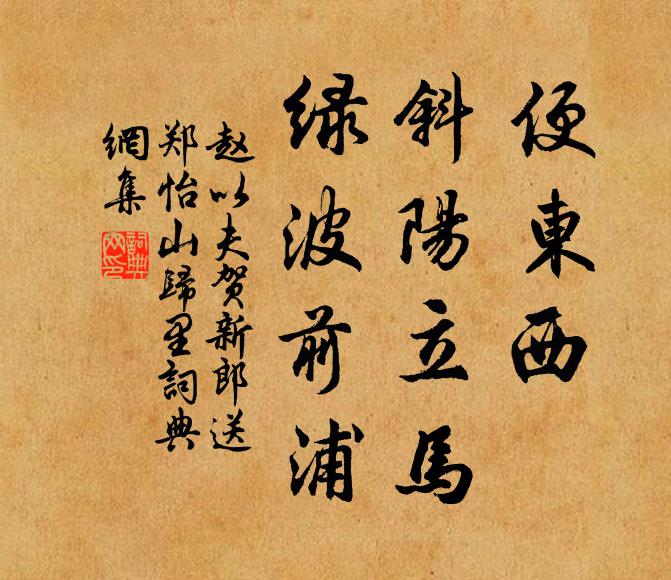 便東西
斜陽立馬
緑波前浦
赵以夫贺新郎送
郑怡山歸里詞典
網集
詞典
网印